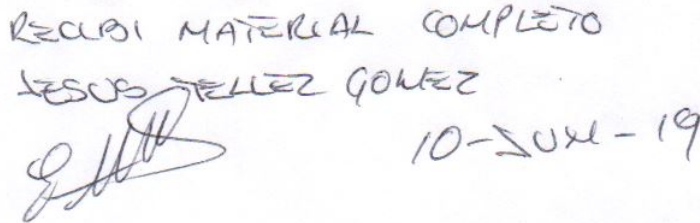 RECIBI MATERIAL COMPLETO
JESUS TELLEZ GOMEZ
10-JUN-19